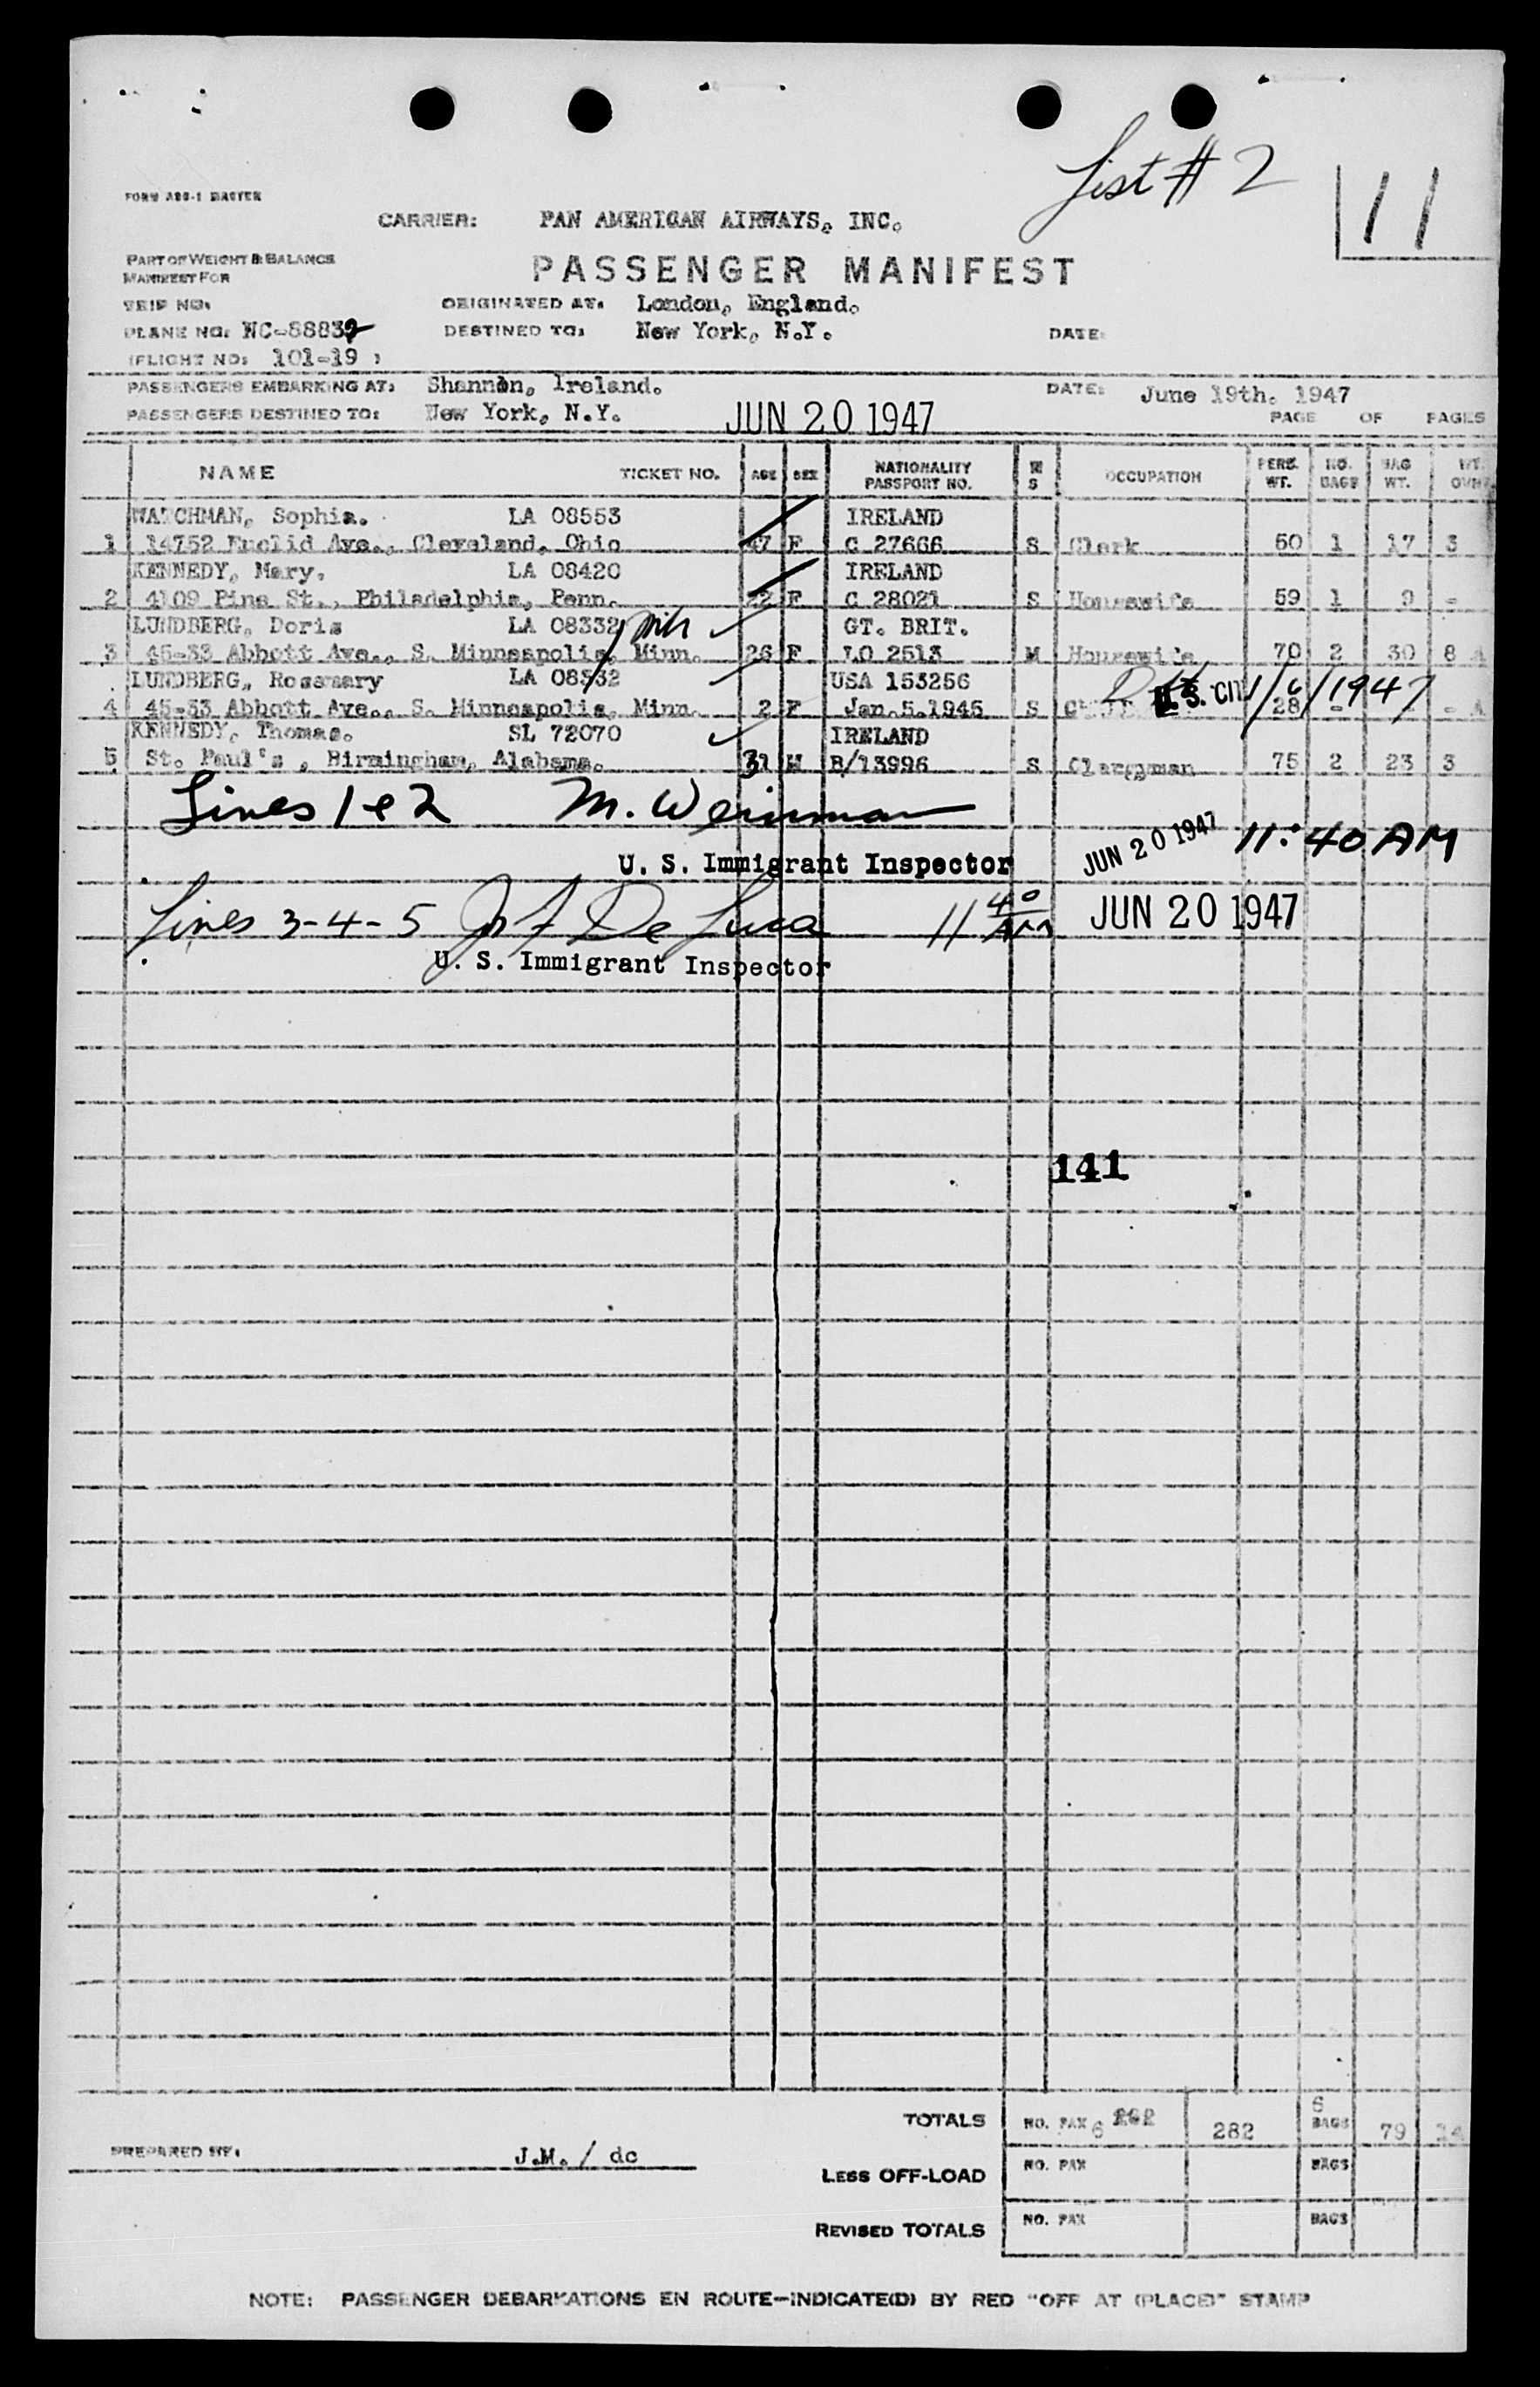 List # 2
11
FORM ABG-1 MASTER
CARRIER: PAN AMERICAN AIRWAYS, INC.
PART OF WEIGHT & BALANCE
MANIFEST FOR
PASSENGER MANIFEST
TRIP NO:
ORIGINATED AT: London, England.
PLANE NO: NC-88832
DESTINED TO: New York, N.Y.
DATE:
(FLIGHT NO: 101-19 )
PASSENGERS EMBARKING AT: Shannon, Ireland.
DATE: June 19th. 1947
PASSENGERS DESTINED TO: New York, N.Y.
JUN 20 1947
PAGE OF PAGES
NAME TICKET NO. AGE SEX NATIONALITY PASSPORT NO. M S OCCUPATION PERS. WT. NO. BAGS BAG WT. WT.
WATCHMAN, Sophia. LA 08553 IRELAND
1 14752 Euclid Ave., Cleveland, Ohio 47 F C 27666 S Clerk 50 1 17 3
KENNEDY, Mary. LA 08420 IRELAND
2 4109 Pine St., Philadelphia, Penn. 22 F C 28021 S Housewife 59 1 9 -
LUNDBERG, Doris LA 08332 GT. BRIT.
3 45-33 Abbott Ave., S. Minneapolis, Minn. 26 F LO 2513 M Housewife 70 2 30 8 A
LUNDBERG, Rosemary LA 08332 USA 153256
4 45-33 Abbott Ave., S. Minneapolis, Minn. 2 F Jan.5.1945 S U.S. CIT 1/6/1947 28 - - A
KENNEDY, Thomas. SL 72070 IRELAND
5 St. Paul's , Birmingham, Alabama. 31 M B/13996 S Clergyman 75 2 23 3
Lines 1 & 2 M. Weinman
U. S. Immigrant Inspector JUN 20 1947 11:40 AM
Lines 3-4-5 De Luca 11 40 AM JUN 20 1947
U. S. Immigrant Inspector
141
TOTALS NO. PAX 6 282 6 BAGS 79 14
PREPARED BY: J.M. / dc
LESS OFF-LOAD NO. PAX BAGS
REVISED TOTALS NO. PAX BAGS
NOTE: PASSENGER DEBARKATIONS EN ROUTE-INDICATE(D) BY RED "OFF AT (PLACE)" STAMP